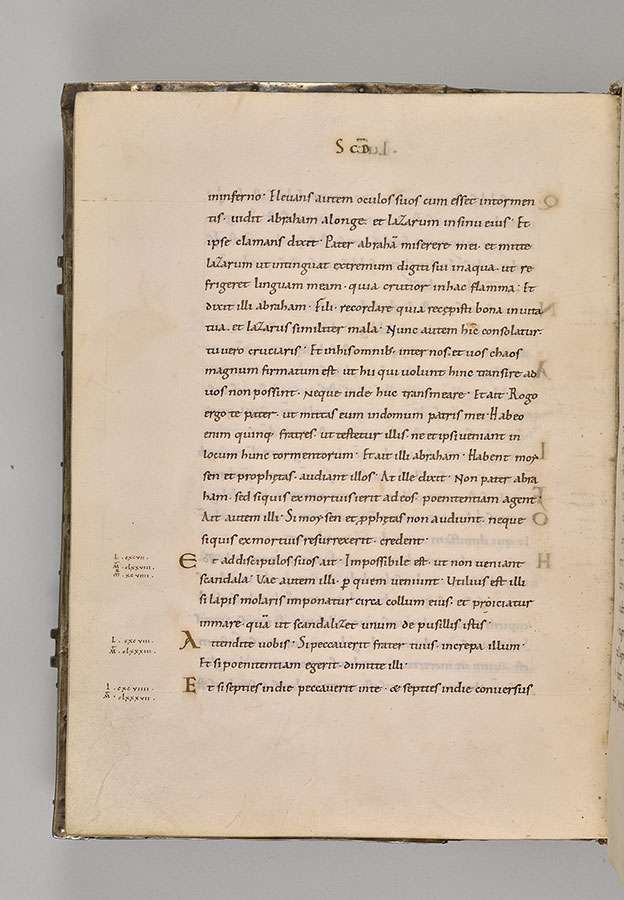 SCD
in inferno· Elevans autem oculos suos cum esset in tormen
tis· vidit abraham a longe· et lazarum in sinu eius· Et
ipse clamans dixit· Pater abrahā miserere mei· et mitte
lazarum ut intinguat extremum digiti sui in aqua· ut re
frigeret linguam meam· quia crucior in hac flamma· Et
dixit illi abraham· Fili· recordare quia recepisti bona in vita
tua· et lazarus similiter mala· Nunc autem hic consolatur·
tu vero cruciaris· Et in his omnib; inter nos et vos chaos
magnum firmatum est· ut hii qui volunt hinc transire ad
vos non possint· neque inde huc transmeare· Et ait· Rogo
ergo te pater· ut mittas eum in domum patris mei· Habeo
enim quinq; fratres· ut testetur illis· ne et ipsi veniant in
locum hunc tormentorum· Et ait illi abraham· Habent moy
sen et prophetas· audiant illos· At ille dixit· Non pater abra
ham· sed si quis ex mortuis ierit ad eos· poenitentiam agent·
Ait autem illi· Si moysen et pphetas non audiunt· neque
si quis ex mortuis resurrexerit· credent·
L· cxcvii·
Et ad discipulos suos ait· Impossibile est· ut non veniant
scandala· Vae autem illi· p quem veniunt· Utilius est illi
si lapis molaris imponatur circa collum eius· et proiciatur
in mare· quā ut scandalizet unum de pusillis istis·
L· cxcviii·
m̄· clxxxiii·
Attendite vobis· Si peccaverit frater tuus· increpa illum·
Et si poenitentiam egerit· dimitte illi·
L· cxcviiii·
m̄· clxxxvii·
Et si septies in die peccaverit in te· & septies in die conversus